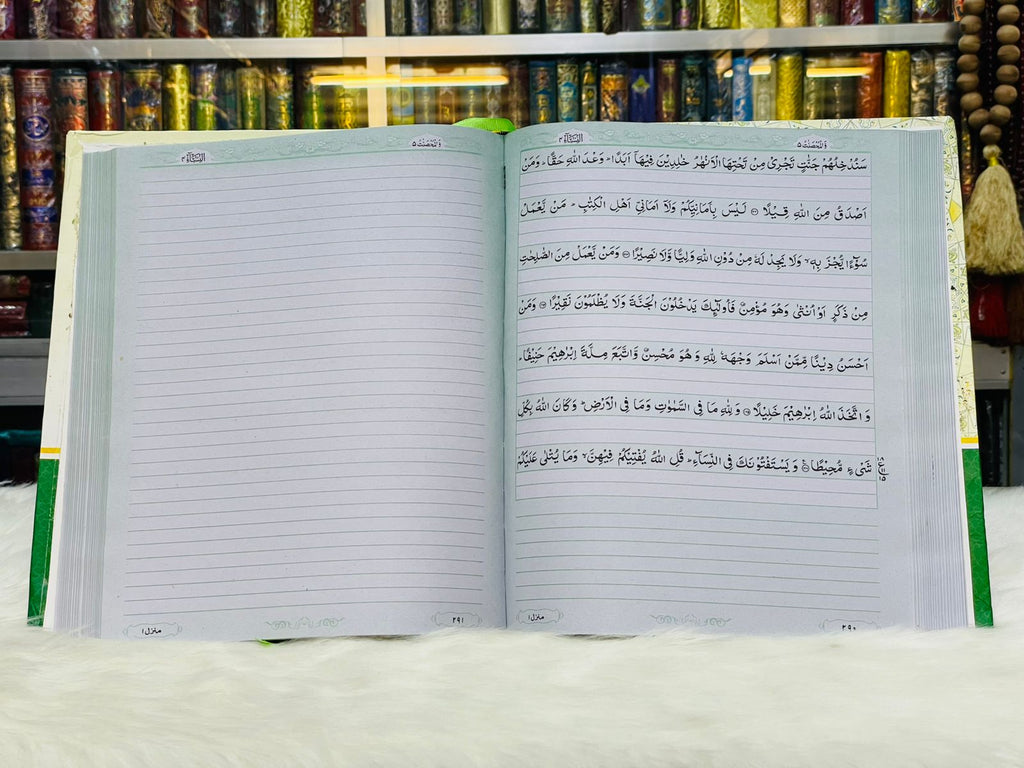 وَالْمُحْصَنٰتُ ٥
النِّسَآء ٤
سَنُدْخِلُهُمْ جَنّٰتٍ تَجْرِيْ مِنْ تَحْتِهَا الْاَنْهٰرُ خٰلِدِيْنَ فِيْهَآ اَبَدًا ؕ وَعْدَ اللّٰهِ حَقًّا ؕ وَمَنْ
اَصْدَقُ مِنَ اللّٰهِ قِيْلًا ﴿۱۲۲﴾ لَيْسَ بِاَمَانِيِّكُمْ وَلَآ اَمَانِيِّ اَهْلِ الْكِتٰبِ ؕ مَنْ يَّعْمَلْ
سُوْٓءًا يُّجْزَ بِهٖ ۙ وَلَا يَجِدْ لَهٗ مِنْ دُوْنِ اللّٰهِ وَلِيًّا وَّلَا نَصِيْرًا ﴿۱۲۳﴾ وَمَنْ يَّعْمَلْ مِنَ الصّٰلِحٰتِ
مِنْ ذَكَرٍ اَوْ اُنْثٰى وَهُوَ مُؤْمِنٌ فَاُولٰٓئِكَ يَدْخُلُوْنَ الْجَنَّةَ وَلَا يُظْلَمُوْنَ نَقِيْرًا ﴿۱۲۴﴾ وَمَنْ
اَحْسَنُ دِيْنًا مِّمَّنْ اَسْلَمَ وَجْهَهٗ لِلّٰهِ وَهُوَ مُحْسِنٌ وَّاتَّبَعَ مِلَّةَ اِبْرٰهِيْمَ حَنِيْفًا ؕ
وَاتَّخَذَ اللّٰهُ اِبْرٰهِيْمَ خَلِيْلًا ﴿۱۲۵﴾ وَلِلّٰهِ مَا فِي السَّمٰوٰتِ وَمَا فِي الْاَرْضِ ؕ وَكَانَ اللّٰهُ بِكُلِّ
شَيْءٍ مُّحِيْطًا ﴿۱۲۶﴾ وَيَسْتَفْتُوْنَكَ فِي النِّسَآءِ ؕ قُلِ اللّٰهُ يُفْتِيْكُمْ فِيْهِنَّ ۙ وَمَا يُتْلٰى عَلَيْكُمْ
۲۹۰
منزل ۱
وَالْمُحْصَنٰتُ ٥
النِّسَآء ٤
۲۹۱
منزل ۱